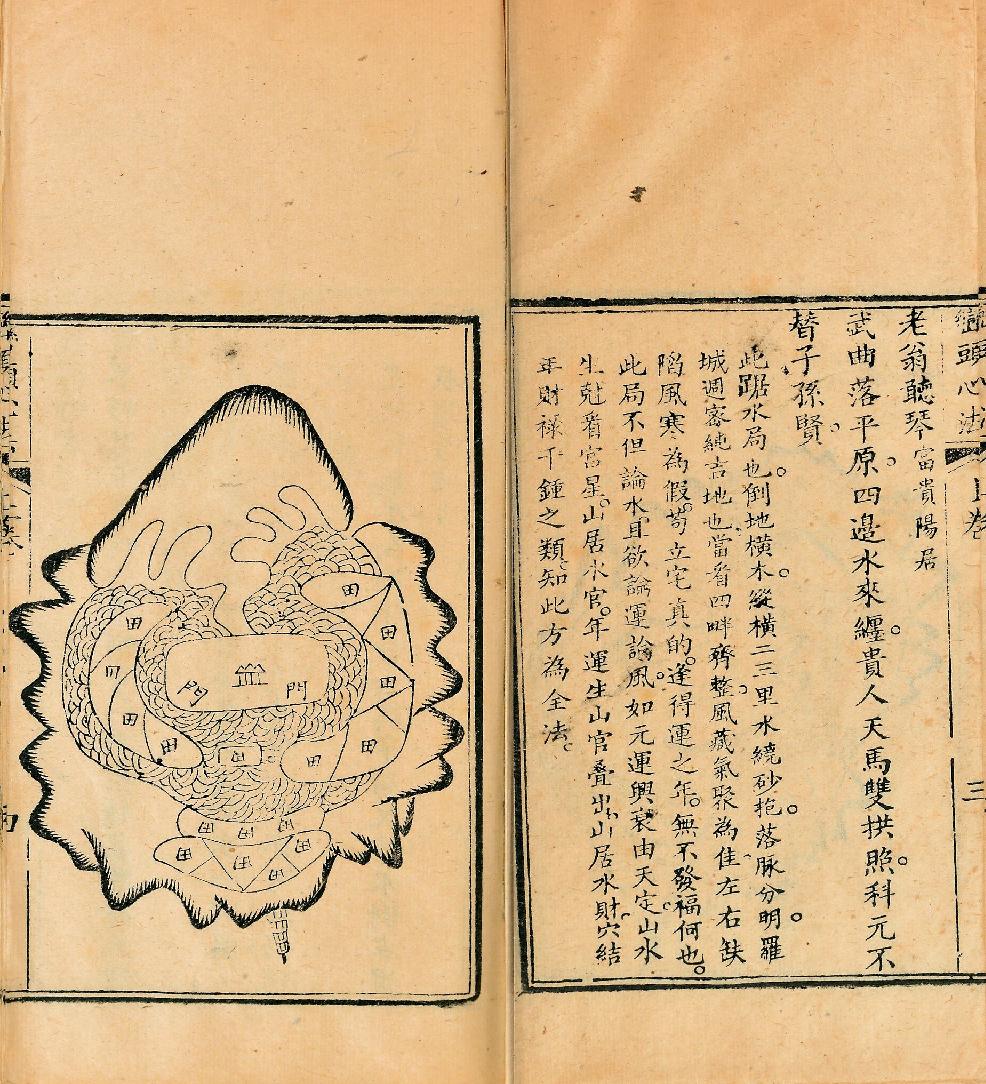 巒頭心法 上卷 三
老翁聽琴富貴陽居
武曲落平原。四邉水來纏。貴人天馬雙拱照。科元不
替子孫賢。
此踞水局也。倒地橫木。縱橫二三里水繞砂抱。落脉分明。羅
城週密純吉地也。當看四畔齊整。風藏氣聚為佳。左右缺
陷風寒為假。苟立宅真的。逢得運之年。無不發福何也。
此局不但論水耳欲論運論風。如元運興衰由天定。山水
生尅看宮星。山居水官。年運生山官疊出。山居水財。穴結
年財祿千鍾之類。知此方為全法。
田
田
田
田
田
田
田
田
田
田
門
門
田
田
田
田
田
田